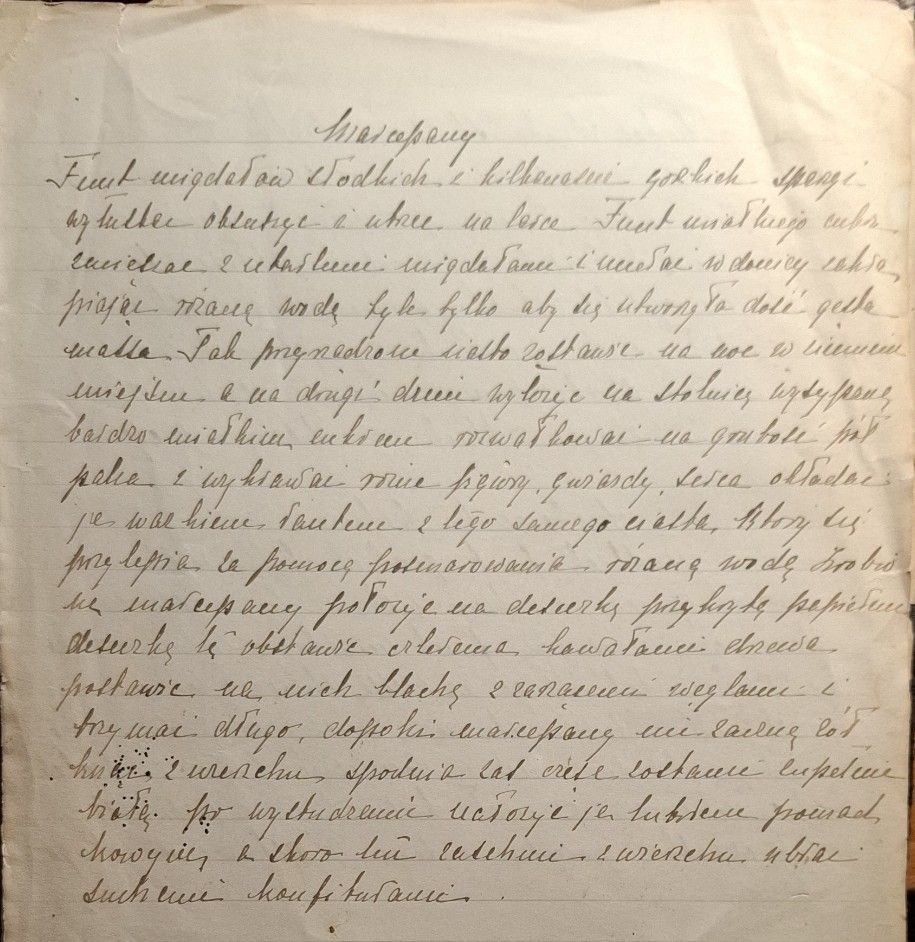 Marcepany
Funt migdałów słodkich i kilkanaście gorzkich sparzyć
wyłuskać obsuszyć i utrzeć na tarce Funt miałkiego cukru
zmieszać z utartemi migdałami i umełać w donicy zakra
piając różaną wodą tyle tylko aby się utworzyła dość gęsta
massa Tak przyrządzone ciasto zostawić na noc w zimnem
miejscu a na drugi dzień wyłożyć na stolnicę wysypaną
bardzo miałkim cukrem rozwałkować na grubość pół
palca i wykrawać różne figury, gwiazdy, serca okładać
je wazkiem kantem z tego samego ciasta, który się
przylepia za pomocą posmarowania różaną wodą Zrobio
ne marcepany położyć na deszczkę przykrytą papierem
deszczkę tę obstawić czterema kawałami drzewa
postawić na nich blachę z żarzącemi węglami i
trzymać długo, dopóki marcepany nie zaczną żół
knąć z wierzchu spodnia zaś część zostanie zupełnie
białą, po wystudzeniu je lukrem pomad
kowym, a skoro ten zaschnie z wierzchu ubrać
suchemi konfiturami.